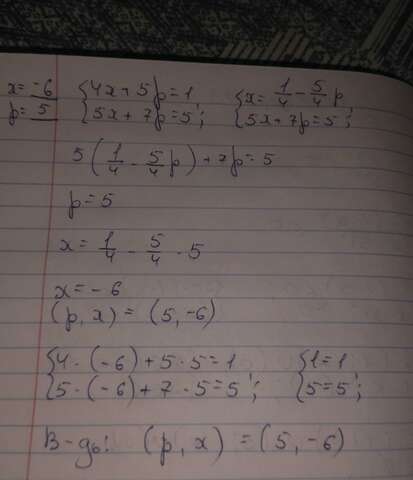 x = -6
p = 5
{4x + 5p = 1,
{5x + 7p = 5;
{x = 1/4 - 5/4 p,
{5x + 7p = 5;
5(1/4 - 5/4 p) + 7p = 5
p = 5
x = 1/4 - 5/4 · 5
x = -6
(p, x) = (5, -6)
{4 · (-6) + 5 · 5 = 1,
{5 · (-6) + 7 · 5 = 5;
{1 = 1,
{5 = 5;
В-дь: (p, x) = (5, -6)